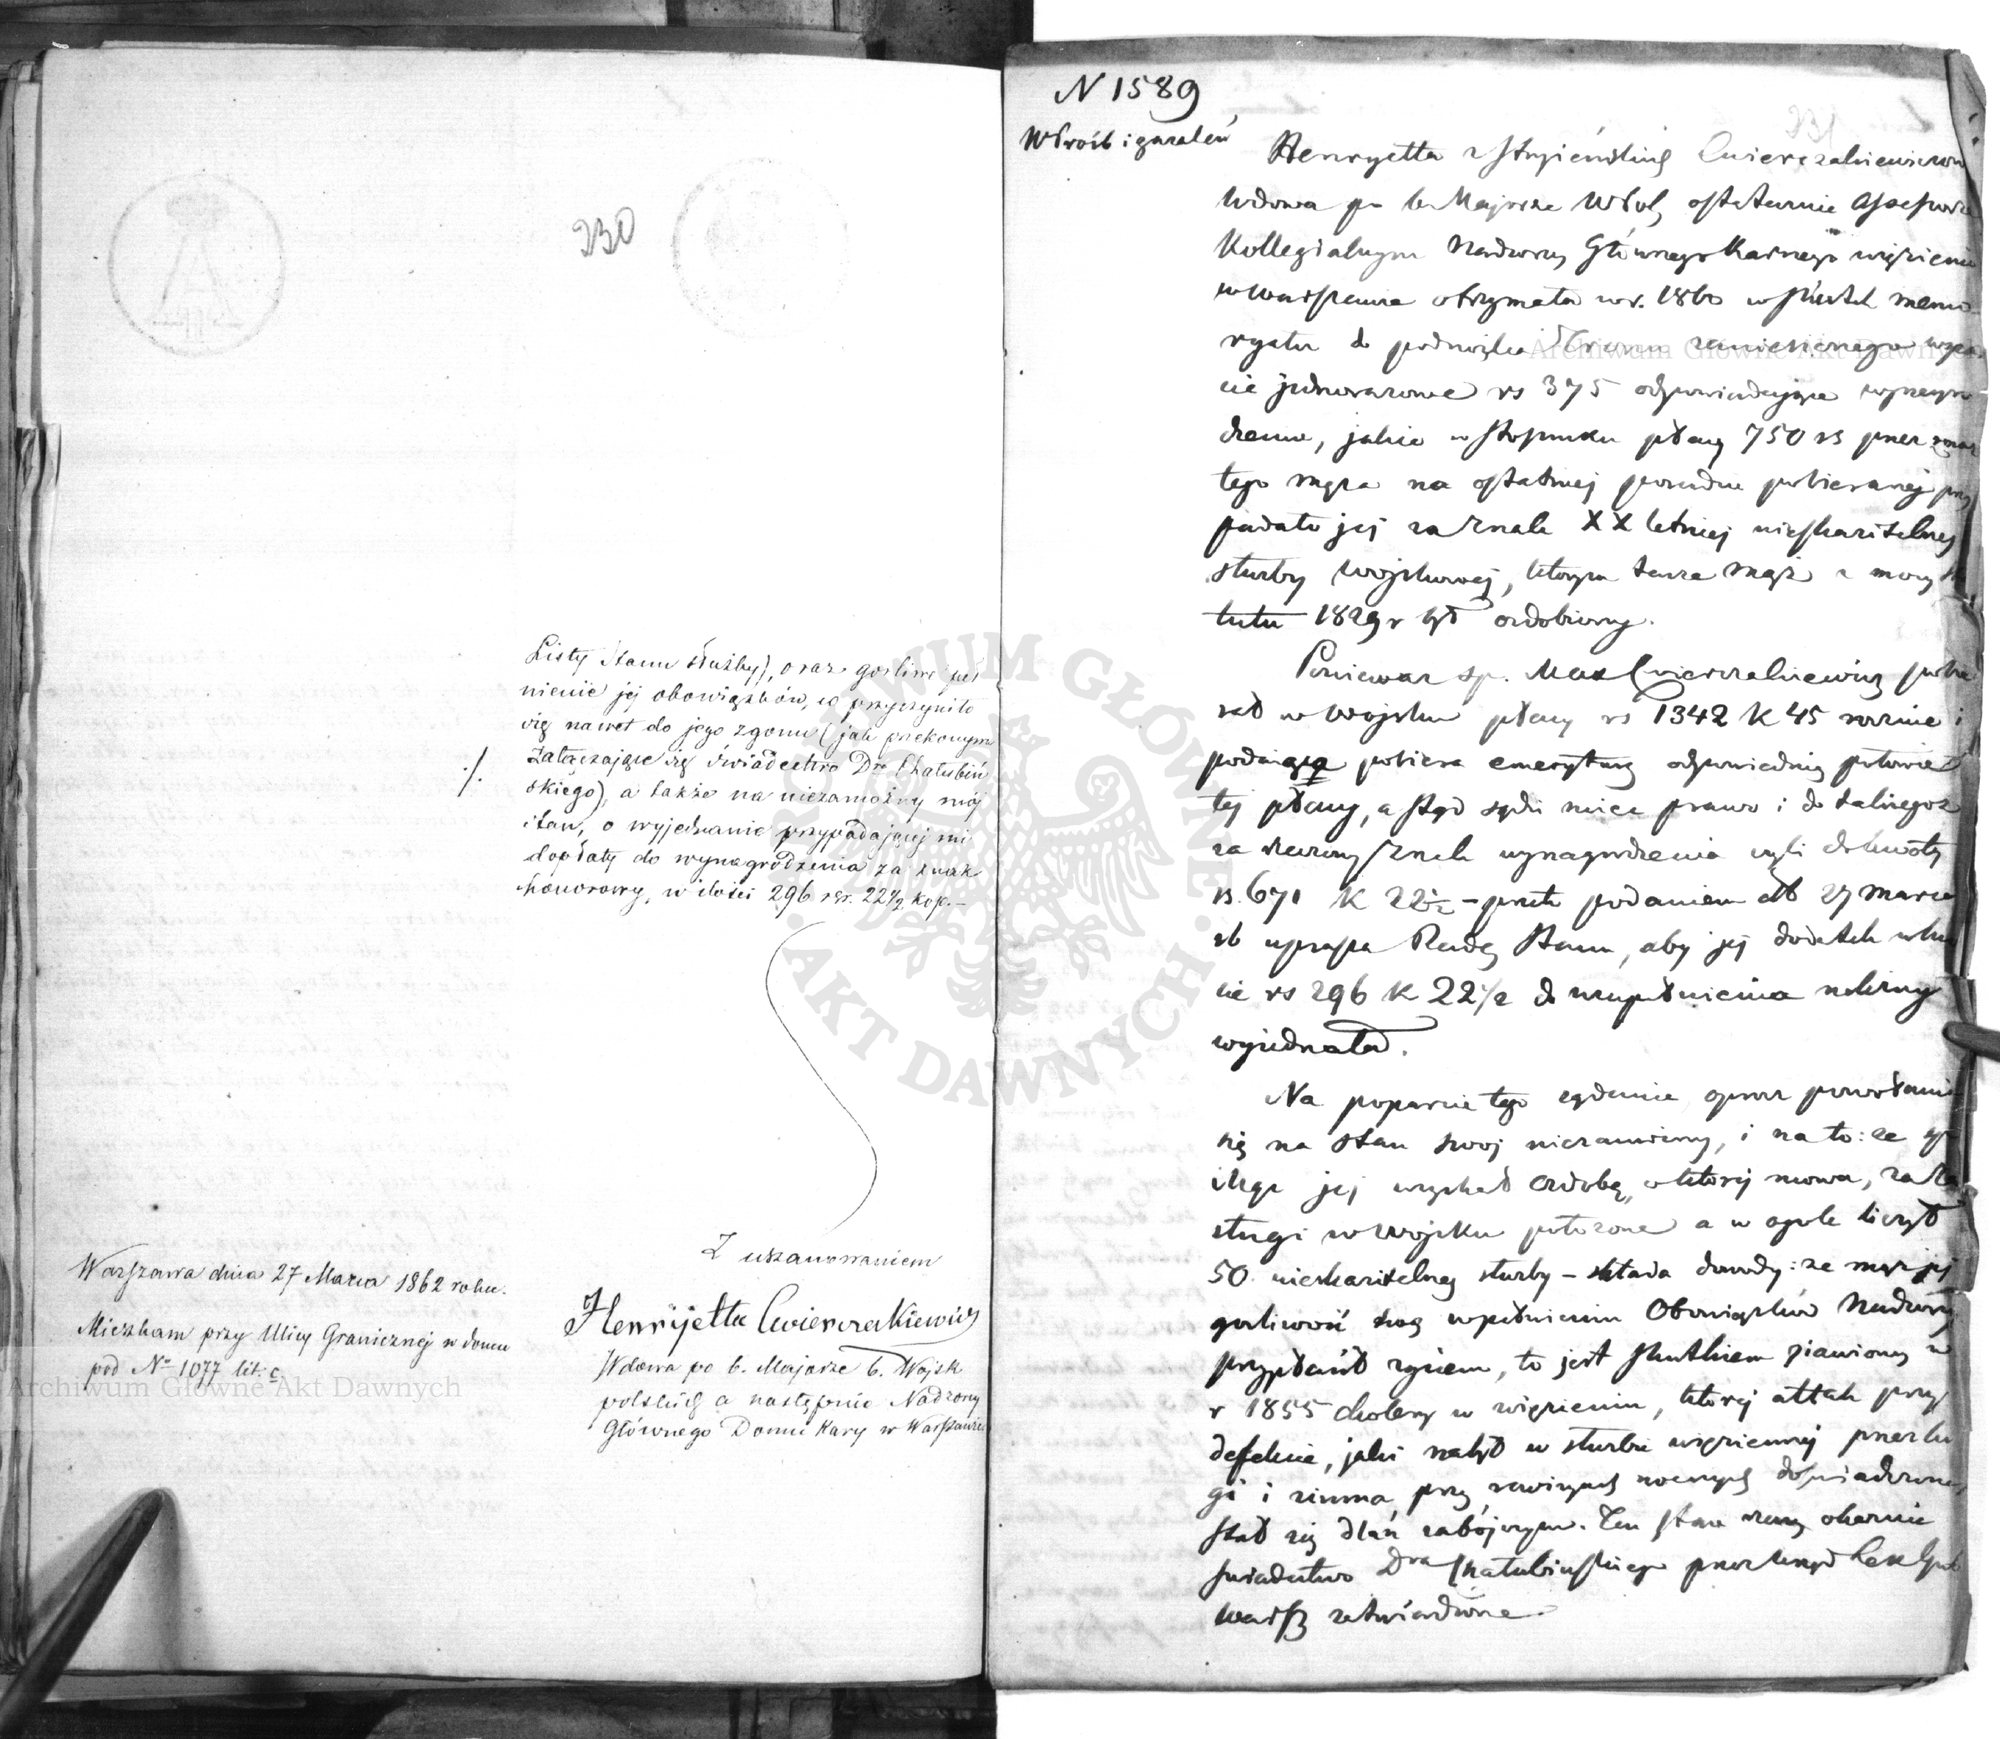 230
Listy Stanu służby), oraz gorliwe peł
nienie jej obowiązków, co przyczyniło
się nawet do jego zgonu (jak przekonywa
załączające się świadectwo Dra Chałubiń
skiego), a także na niezamożny mój
stan, o wyjednanie przypadającej mi
dopłaty do wynagrodzenia za znak
honorowy, w ilości 296 rsr. 22½ kop.—
./.
Z uszanowaniem
Henryjetta Cwierczakiewicz
Wdowa po b. Majorze b. Wojsk
polskich a następnie Nadzorcy
Głównego Domu Kary w Warszawie
Warszawa dnia 27 Marca 1862 roku.
Mieszkam przy Ulicy Granicznej w domu
pod No 1077 lit. c
N 1589
W Prośb i zażaleń
231
Henryetta z Cwierczakiewiczowa
wdowa po b. Majorze W Pol, ostatecznie Assessorze
Kollegialnym Nadzorcy Głównego Karnego więzienia
w Warszawie otrzymała w r. 1860 w skutek memo
ryału do podnóżka Tronu zaniesionego wspar
cie jednorazowe rs 375 odpowiadające wynagro
dzeniu, jakie w stosunku płacy 750 rs przez zmar
łego męża na ostatniej posadzie pobieranej przy
padało jej za znak XX letniej nieskazitelnej
służby wojskowej, którym tenże mąż z mocy
tutu 1829 r był ozdobiony.
Ponieważ sp. Max Cwierczakiewicz pobie
rał w Wojsku płacy rs 1342 K 45 rocznie i
podająca pobiera emeryturę odpowiednią połowie
tej płacy, a stąd sądzi mieć prawo i do takiegoż
za rzeczony znak wynagrodzenia czyli do kwoty
rs. 671 K 22½ – przeto podaniem dto 27 marca
rb uprasza Radę Stanu, aby jej dodatek w kwo
cie rs 296 K 22½ do uzupełnienia należny
wyjednała.
Na poparcie tego żądania oprócz powołania
się na stan swój niezamożny, i na to: że
mąż jej uzyskał ozdobę, o której mowa, za za
sługi w wojsku położone a w ogóle liczył
50. nieskazitelnej służby – składa dowody: że mąż jej
gorliwość swą w pełnieniu Obowiązków Nadzorcy
przypłacił życiem, to jest skutkiem zjawionej w
r 1855 cholery w więzieniu, której attak przy
defekcie, jaki nabył w służbie więziennej przez tru
gi i zimna przy rewizyach nocnych doświadczone,
stał się dlań zabójczym. Ten stan rzeczy okazuje
świadectwo Dra Chałubińskiego przez Urząd Lek Gub
Warsz zatwierdzone.
Archiwum Główne Akt Dawnych
Archiwum Główne Akt Dawnych
ARCHIWUM GŁÓWNE · AKT DAWNYCH ·